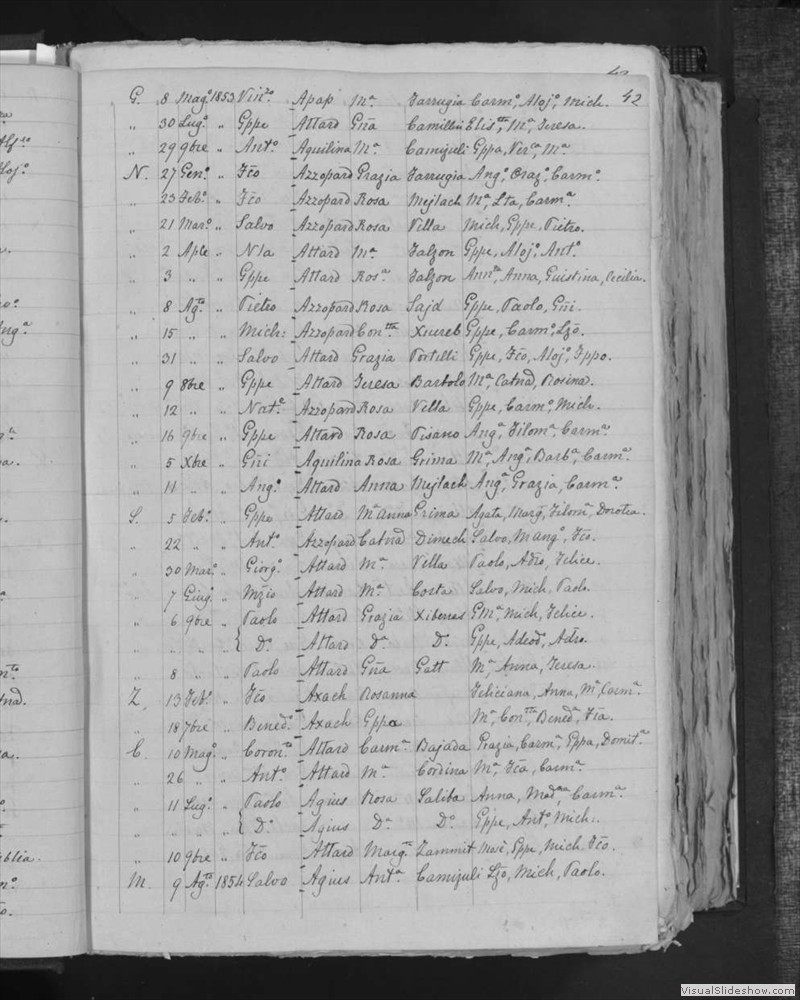 42
G. 8 Mago. 1853 Vinzo. Apap Ma. Farrugia Carmo, Alojo, Mich.
" 30 Lugo. " Gppe Attard Gña Camilleri Elistta, Ma, Teresa.
" 29 9bre " Anto. Aquilina Ma. Camizuli Gppa, Vera, Ma
N. 27 Geno. " Fćo Azzopard Grazia Farrugia Ango, Orazo, Carmo.
" 23 Febo. " Fćo Azzopard Rosa Mejlach Ma, Lta, Carma.
" 21 Maro. " Salvo Azzopard Rosa Villa Mich, Gppe, Pietro.
" 2 Aple " Nla Attard Ma. Falzon Gppe, Alojo, Anto.
" 3 " " Gppe Attard Rosa. Falzon Annta, Anna, Guistina, Cecilia.
" 8 Agto " Pietro Azzopard Rosa Sajd Gppe, Paolo, Gñi.
" 15 " " Mich: Azzopard Contta. Xuereb Gppe, Carmo, Lzo.
" 31 " " Salvo Attard Grazia Portelli Gppe, Fćo, Alojo, Fppo.
" 9 8bre " Gppe Attard Teresa Bartolo Ma, Catnad, Rosina.
" 12 " " Nate. Azzopard Rosa Vella Gppe, Carmo, Mich.
" 16 9bre " Gppe Attard Rosa Pisano Anga, Filoma, Carma.
" 5 Xbre " Gñi Aquilina Rosa Grima Ma, Anga, Barba, Carma.
" 11 " " Ango. Attard Anna Mejlach Anga, Grazia, Carma.
S. 5 Febo. " Gppe Attard Ma. Anna Grima Agata, Marg, Filoma, Dorotea.
" 22 " " Anto. Azzopard Catnad Dimech Salvo, M. ango, Fćo.
" 30 Maro. " Giorgo. Attard Ma. Vella Paolo, Adro, Felice.
" 7 Giugo " Mzio Attard Ma. Costa Salvo, Mich, Paolo.
" 6 9bre " Paolo Attard Grazia Xiberras GMa, Mich, Felice.
" " " " { Do. Attard Da. Do. Gppe, Adeod, Adro.
" 8 " " Paolo Attard Gña Gatt Ma, Anna, Teresa.
Z. 13 Febo. " Fćo Axach Rosanna Feliciana, Anna, Ma, Carma.
" 18 7bre " Benedo. Axach Gppa Ma, Contta, Beneda, Fća.
C. 10 Mago. " Coronto Attard Carma. Bajada Grazia, Carma, Gppa, Domita
" 26 " " Anto. Attard Ma. Cordina Ma, Fća, Carma.
" 11 Lugo. " Paolo Agius Rosa Saliba Anna, Madna, Carma.
" " " " { Do. Agius Da. Do. Gppe, Anto, Mich:
" 10 9bre " Fćo Attard Marga Zammit Mosè, Gppe, Mich, Fćo.
M. 9 Agto 1854 Salvo Agius Anta. Camizuli Lzo, Mich, Paolo.
VisualSlideshow.com